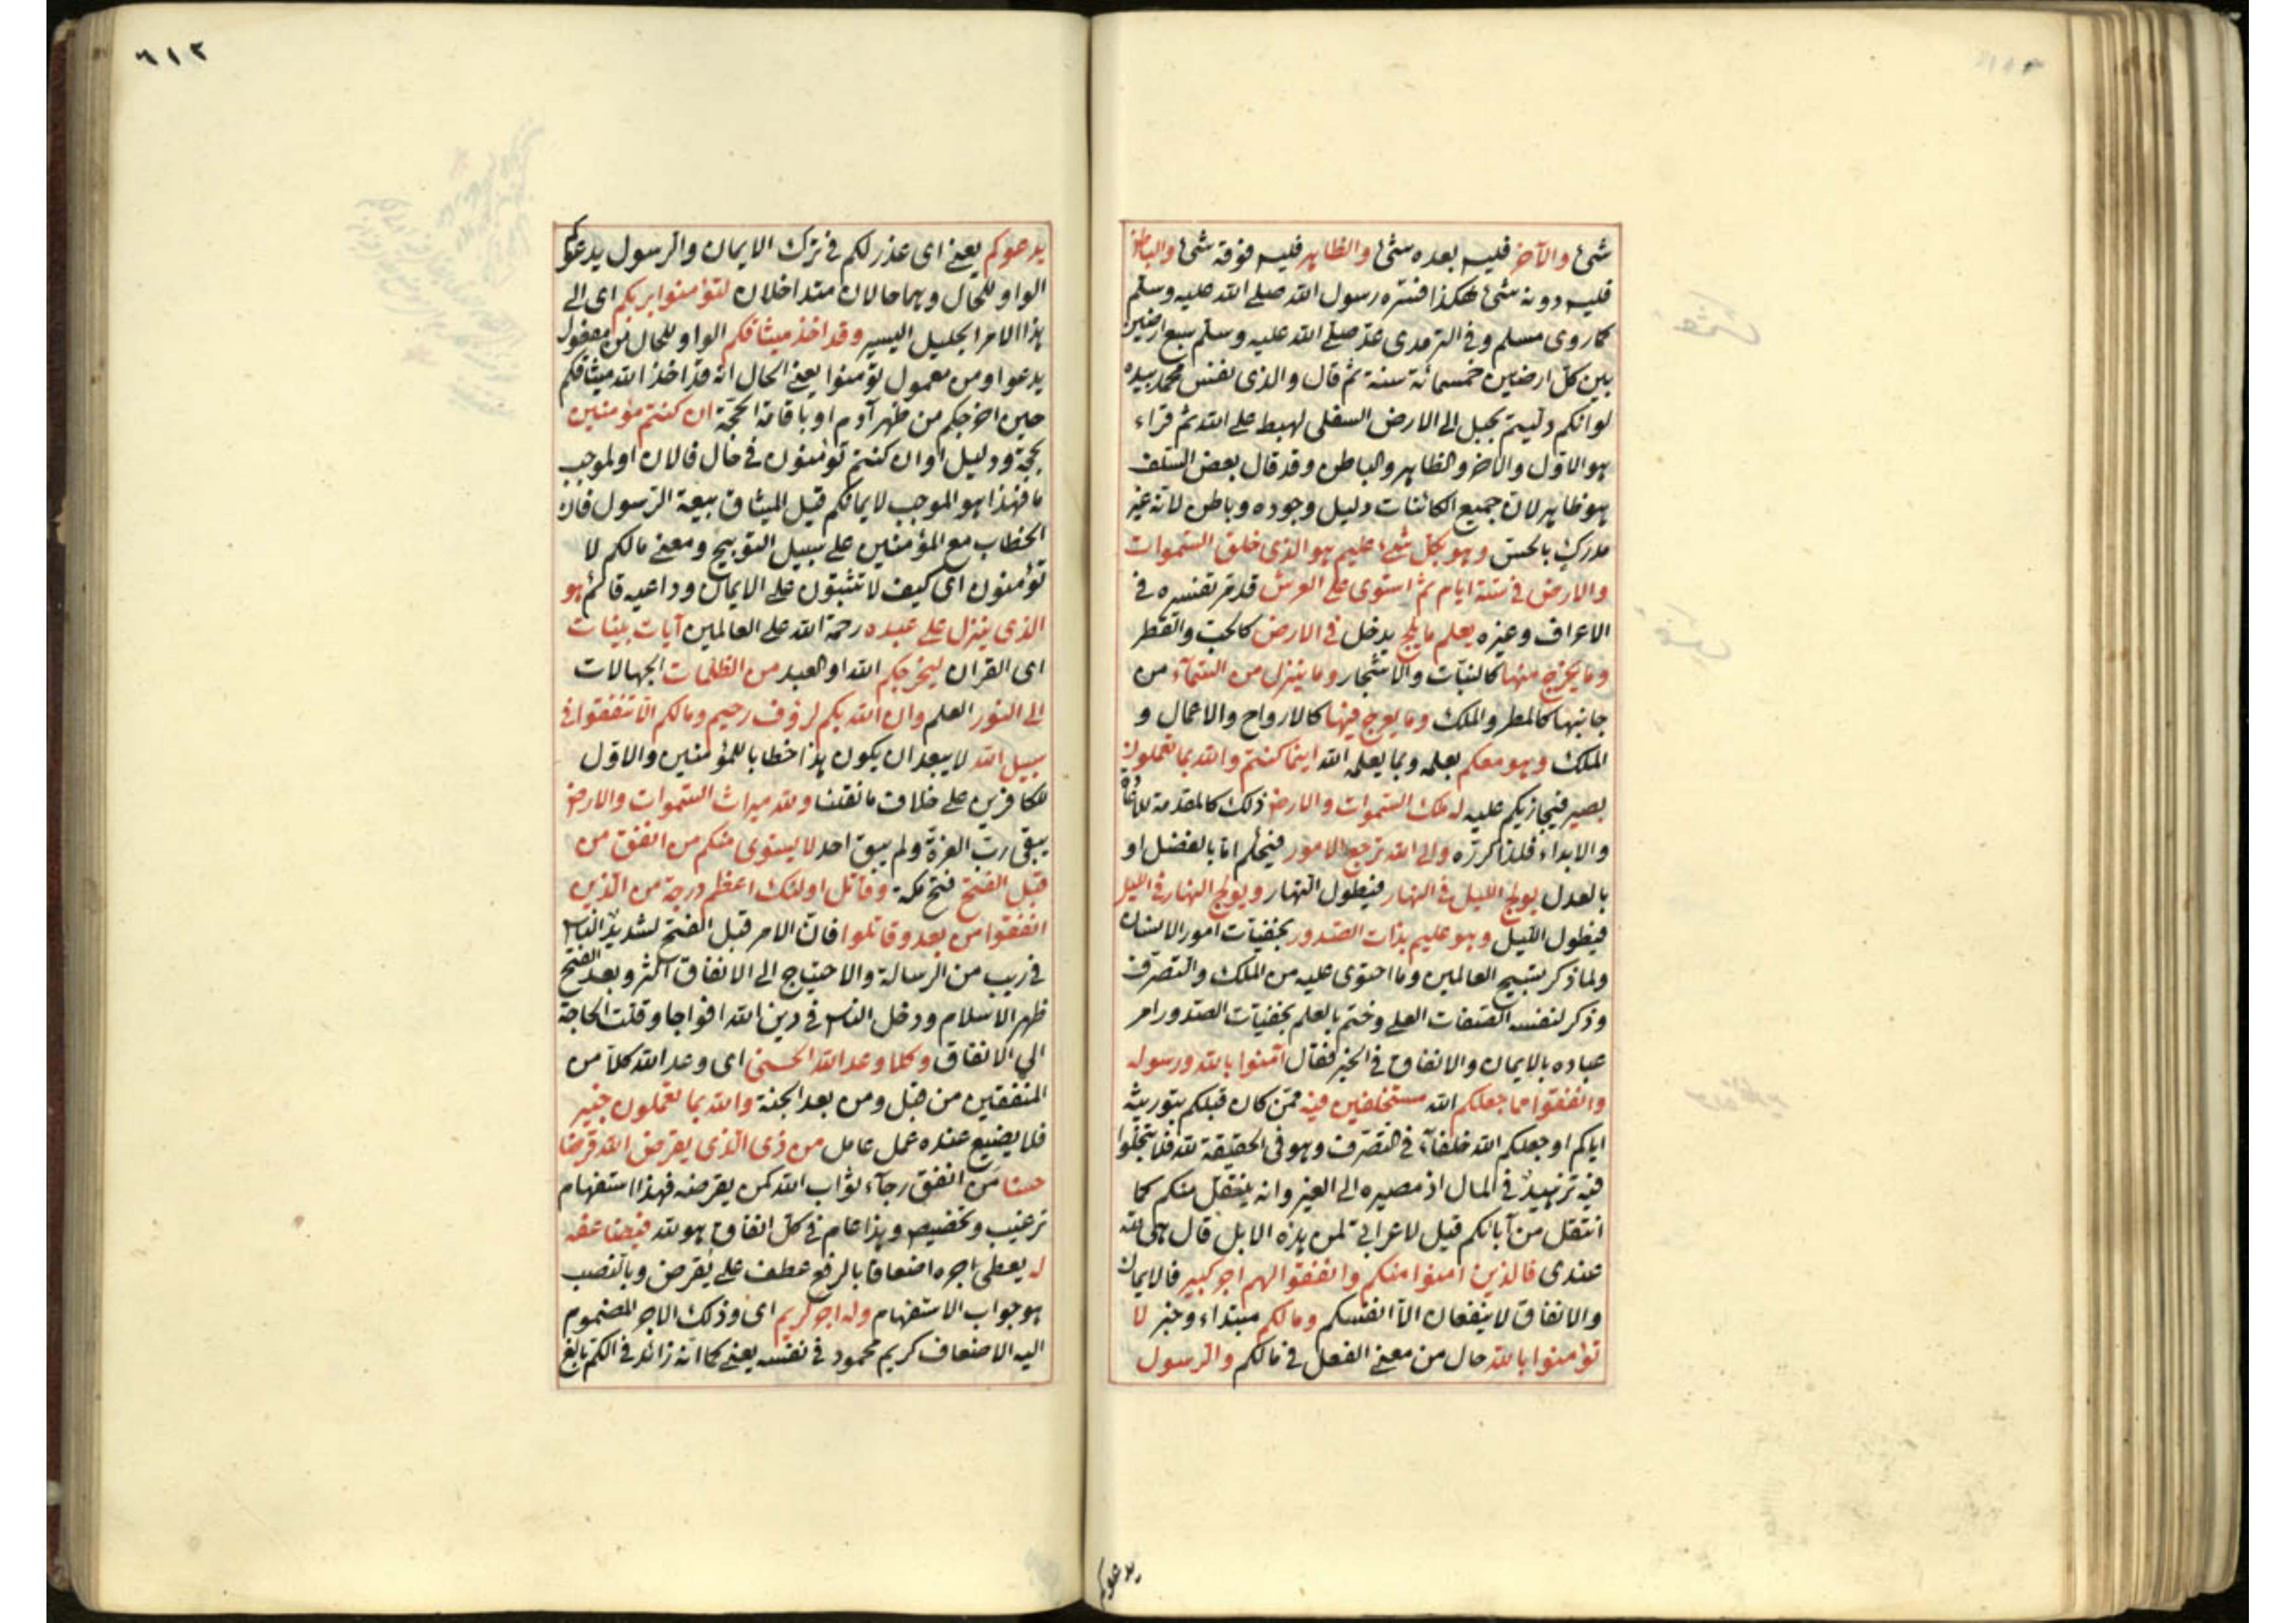 شئ والآخر فليس بعده شئ والظاهر فليس فوقه شئ والباطن
فليس دونه شئ هكذا فسره رسول الله صلى الله عليه وسلم
كما روى مسلم وفى الترمذى عنه صلى الله عليه وسلم سبع ارضين
بين كل ارضين خمسمائة سنة ثم قال والذى نفس محمد بيده
لو انكم دليتم بحبل الى الارض السفلى لهبط على الله ثم قراء
هو الاول والآخر والظاهر والباطن وقد قال بعض السلف
هو ظاهر لان جميع الكائنات دليل وجوده وباطن لانه غير
مدرك بالحس وهو بكل شئ عليم هو الذى خلق السموات
والارض فى ستة ايام ثم استوى على العرش قد مر تفسيره فى
الاعراف وغيره يعلم ما يلج يدخل فى الارض كالحب والقطر
وما يخرج منها كالنبات والاشجار وما ينزل من السماء من
جانبها كالمطر والملك وما يعرج فيها كالارواح والاعمال و
الملك وهو معكم بعلمه وبما يعلمه الله اينما كنتم والله بما تعملون
بصير فيجازيكم عليه له ملك السموات والارض ذلك كالمقدمة للاعادة
والابداء فلذا كرره والى الله ترجع الامور فيحكم اما بالفضل او
بالعدل يولج الليل فى النهار فيطول النهار ويولج النهار فى الليل
فيطول الليل وهو عليم بذات الصدور بخفيات امور الانسان
ولما ذكر تسبيح العالمين وما احتوى عليه من الملك والتصرف
وذكر لنفسه الصفات العلى وختم بالعلم بخفيات الصدور امر
عباده بالايمان والانفاق فى الخير فقال آمنوا بالله ورسوله
وانفقوا مما جعلكم الله مستخلفين فيه ممن كان قبلكم بتوريثه
اياكم او جعلكم الله خلفاء فى التصرف وهو فى الحقيقة لله فلا تبخلوا
فيه تزهيد فى المال اذ مصيره الى الغير وانه ينتقل منكم كما
انتقل من آبائكم قيل لاعرابى لمن هذه الابل قال هى لله
عندى فالذين امنوا منكم وانفقوا لهم اجر كبير فالايمان
والانفاق لا ينفعان الا انفسكم وما لكم مبتداء وخبر لا
تؤمنوا بالله حال من معنى الفعل فى مالكم والرسول
يدعوكم
٦١٢
يدعوكم يعنى اى عذر لكم فى ترك الايمان والرسول يدعوكم
الواو للحال وهما حالان متداخلان لتؤمنوا بربكم اى الى
هذا الامر الجليل اليسير وقد اخذ ميثاقكم الواو للحال من مفعول
يدعوا ومن معمول تؤمنوا يعنى الحال انه قد اخذ الله ميثاقكم
حين اخرجكم من ظهر آدم او باقامة الحجة ان كنتم مؤمنين
بحجة ودليل او ان كنتم تؤمنون فى حال فالان او لموجب
ما فهذا هو الموجب لايمانكم قيل الميثاق بيعة الرسول فان
الخطاب مع المؤمنين على سبيل التوبيخ ومعنى مالكم لا
تؤمنون اى كيف لا تثبتون على الايمان وداعيه قائم هو
الذى ينزل على عبده رحمة الله على العالمين آيات بينات
اى القران ليخرجكم الله او العبد من الظلمات الجهالات
الى النور العلم وان الله بكم لرؤف رحيم وما لكم الا تنفقوا فى
سبيل الله لا يبعد ان يكون هذا خطابا للمؤمنين والاول
للكافرين على خلاف ما نقلنا ولله ميراث السموات والارض
يبقى رب العزة ولم يبق احد لا يستوى منكم من انفق من
قبل الفتح فتح مكة وقاتل اولئك اعظم درجة من الذين
انفقوا من بعد وقاتلوا فان الامر قبل الفتح لشديد الناس
فى ريب من الرسالة والاحتياج الى الانفاق اكثر وبعد الفتح
ظهر الاسلام ودخل الناس فى دين الله افواجا وقلت الحاجة
الى الانفاق وكلا وعد الله الحسنى اى وعد الله كلا من
المنفقين من قبل ومن بعد الجنة والله بما تعملون خبير
فلا يضيع عنده عمل عامل من ذى الذى يقرض الله قرضا
حسنا من انفق رجاء ثواب الله كمن يقرضه فهذا استفهام
ترغيب وتحضيض وهذا عام فى كل انفاق هو لله فيضاعفه
له يعطى اجره اضعافا بالرفع عطف على يقرض وبالنصب
هو جواب الاستفهام وله اجر كريم اى وذلك الاجر المضموم
اليه الاضعاف كريم محمود فى نفسه يعنى كما انه زائد فى الكم بالغ